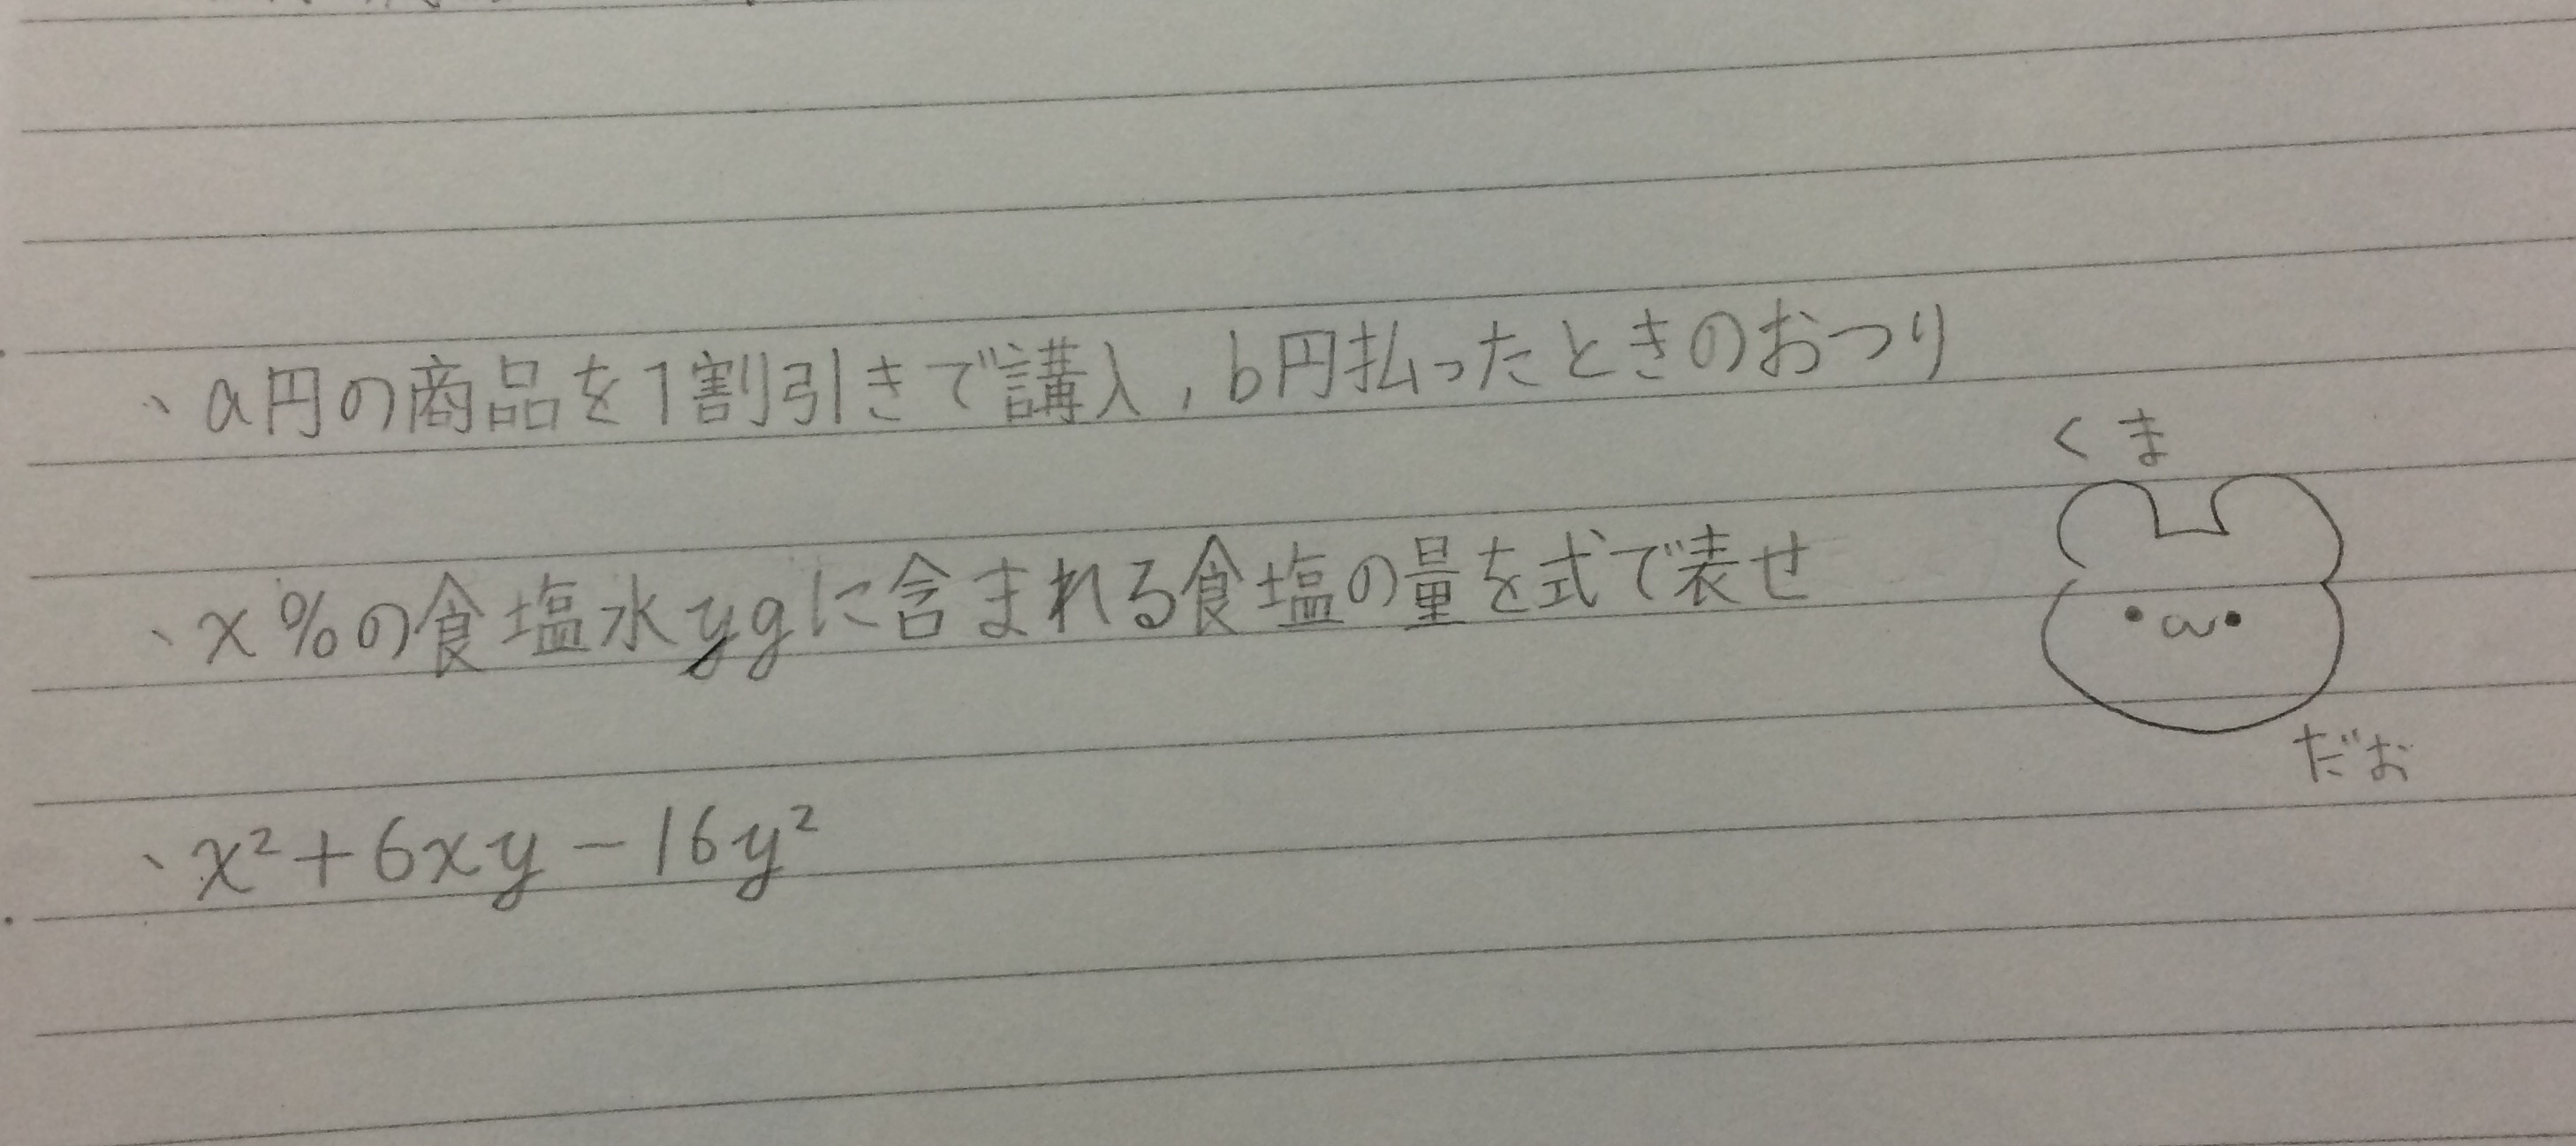 、a円の商品を1割引きで講入,b円払ったときのおつり
くま
、x%の食塩水ygに含まれる食塩の量を式で表せ
だお
、x²+6xy-16y²